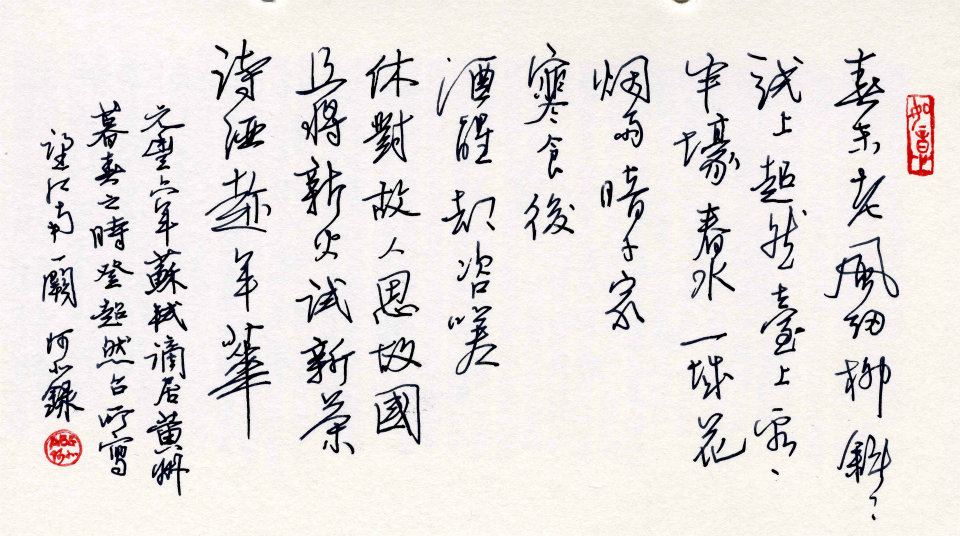 春未老風細柳斜々
試上超然臺上看
半壕春水一城花
烟雨暗千家
寒食後
酒醒却咨嗟
休對故人思故國
且將新火試新茶
詩酒趁年華
元豐年蘇軾謫居黃州
暮春之時登超然台所寫
望江南一闋 錄